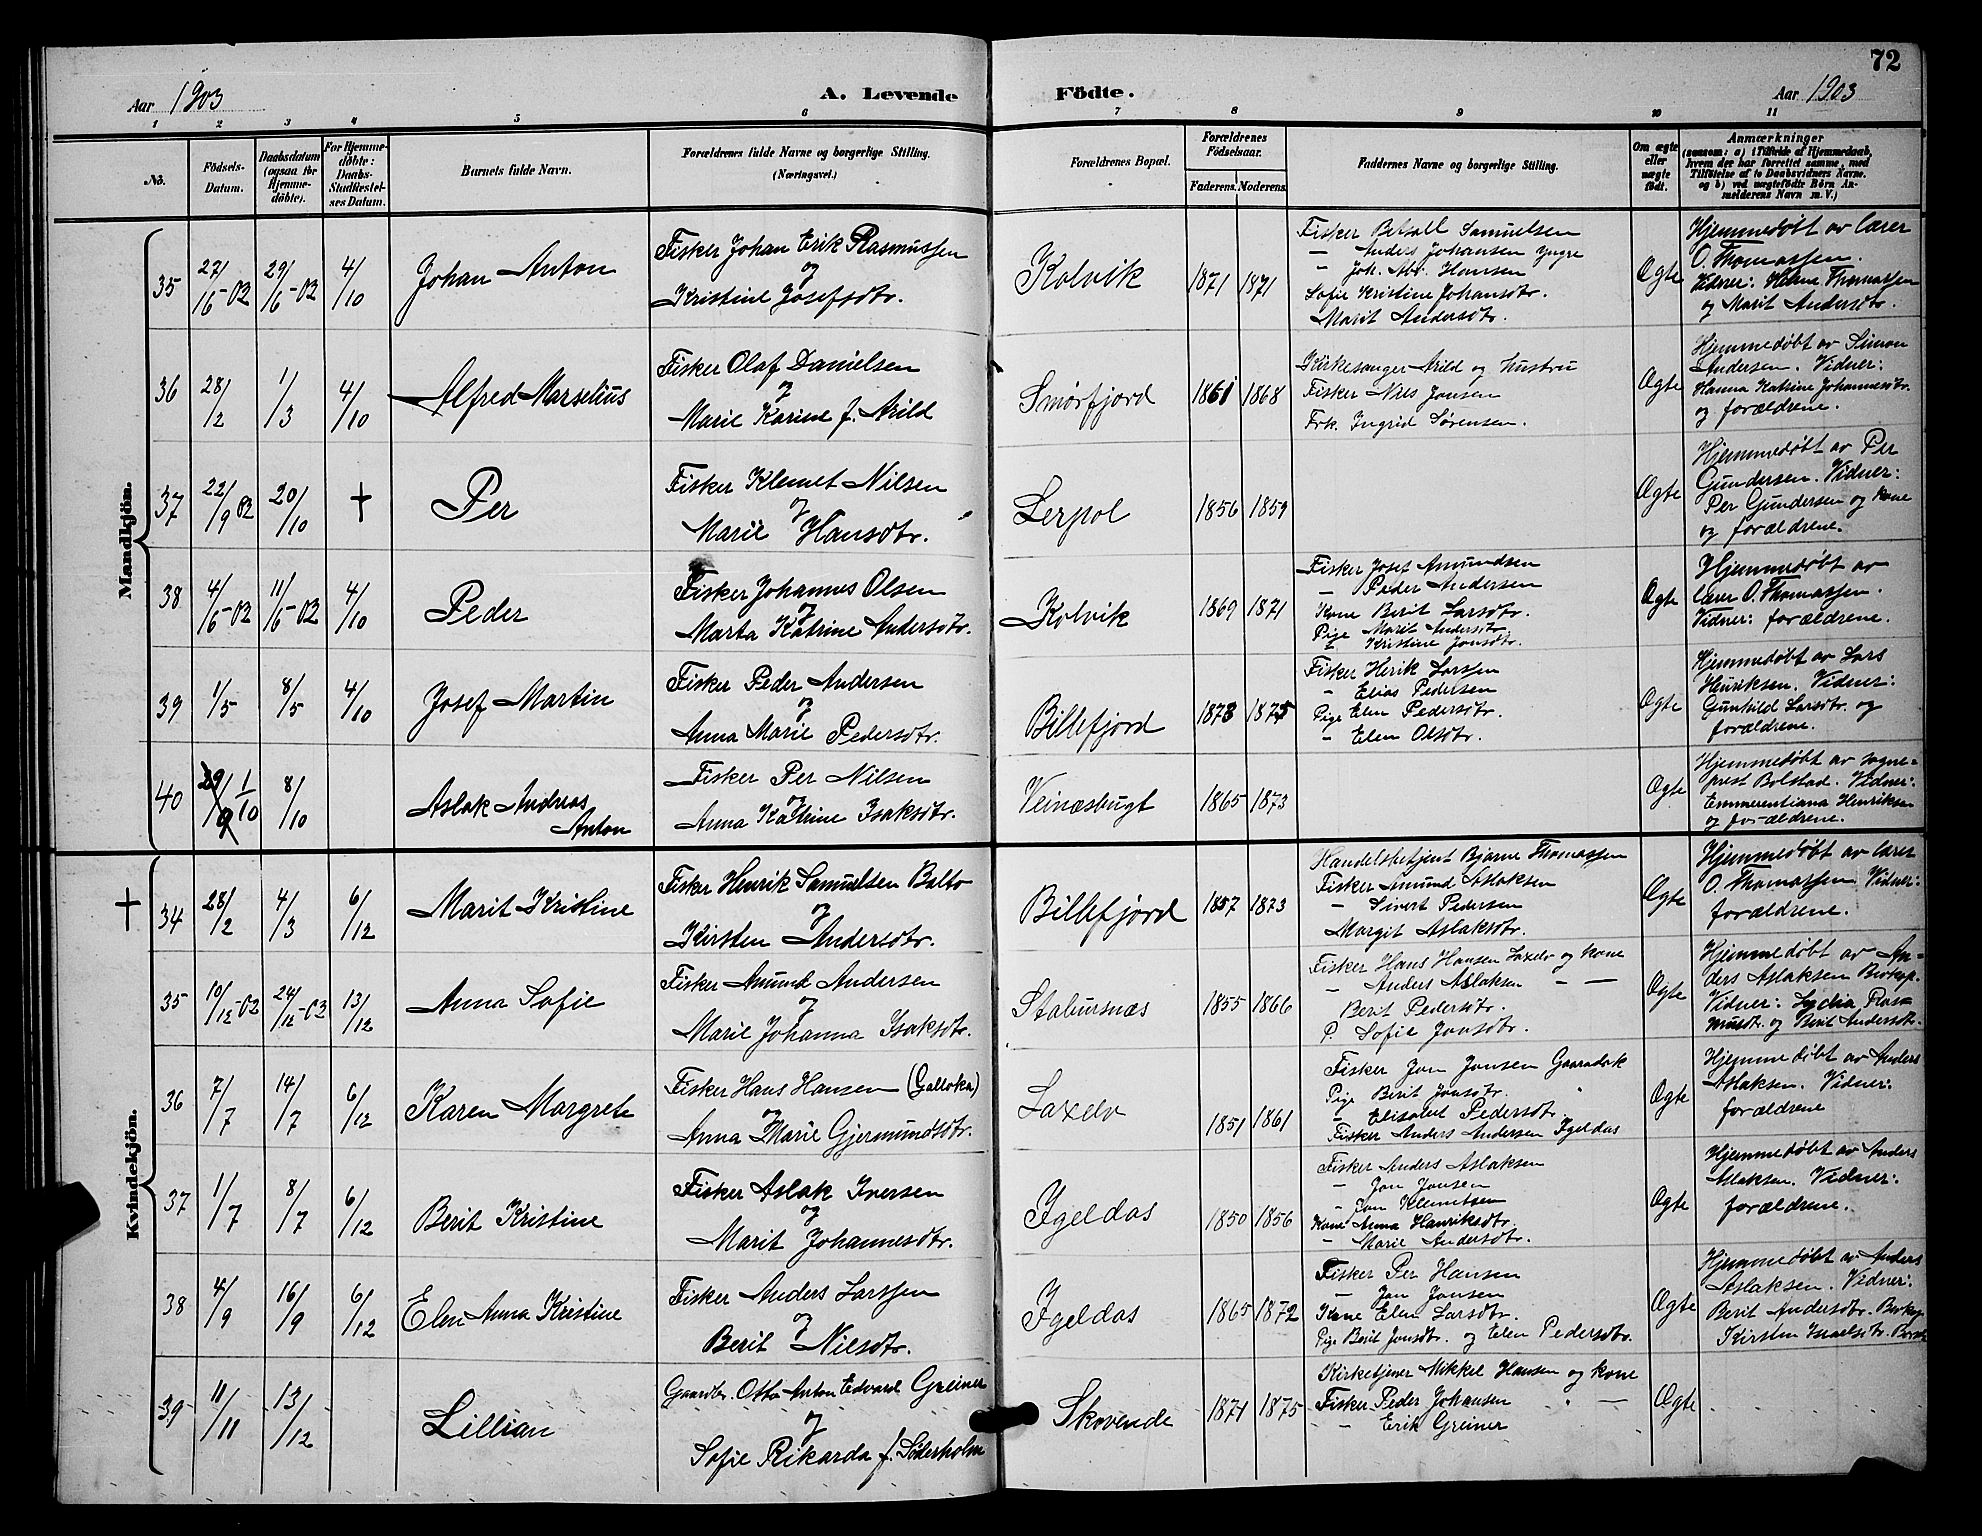 72
Aar 1903
A. Levende Födte.
Aar 1903
1 2 3 4 5 6 7 8 9 10 11
No.
Födsels-Datum.
Daabsdatum (ogsaa for Hjemmedöbte).
For Hjemmedöbte: Daabs-Stadfæstelses Datum.
Barnets fulde Navn.
Forældrenes fulde Navne og borgerlige Stilling. (Næringsvei.)
Forældrenes Bopæl.
Forældrenes Födselsaar.
Faderens. Moderens.
Faddernes Navne og borgerlige Stilling.
Om ægte eller uægte født.
Anmærkninger
(saasom: a) i Tilfælde af Hjemmedaab, hvem der har forrettet samme, med Tilföielse af to Daabsvidners Navne. og b) ved uægtefödte Börn Anmelderens Navn m. V.)
Mandkjön.
35 27/6-02 29/6-02 4/10 Johan Anton
Fisker Johan Erik Rasmussen
og
Kristine Josefsdtr.
Kolvik 1871 1871
Fisker Samuelsen
– Anders Johansen yngre
– Joh. Abr. Hansen
Sofie Kristine Johansdtr.
Marit Andersdtr.
Ægte
Hjemmedøbt av lærer
O. Thomassen.
Vidner: Thomassen
og Marit Andersdtr.
36 28/2 1/3 4/10 Alfred Marselius
Fisker Olaf Danielsen
og
Marie Karine f. Arild
Smørfjord 1861 1868
Kirkesanger Arild og hustru
Fisker Nils Jonsen
Frk. Ingrid Sørensen.
Ægte
Hjemmedøbt av Simon
Andersen. Vidner:
Hanna Katrine Johannesdtr.
og forældrene.
37 22/9 02 20/10 † Per
Fisker Klemet Nilsen
og
Marie Hansdtr.
Lerpol 1856 1859
Ægte
Hjemmedøbt av Per
Gundersen. Vidner:
Per Gundersen og kone
og forældrene.
38 4/6-02 11/6-02 4/10 Peder
Fisker Johannes Olsen
og
Marta Katrine Andersdtr.
Kolvik 1869 1871
Fisker Josef Amundsen
– Peder Andersen
Kone Berit Larsdtr.
Pige Marit Andersdtr.
– Kristine Jonsdtr.
Ægte
Hjemmedøbt av
lærer O. Thomassen.
Vidner: forældrene.
39 1/5 8/5 4/10 Josef Martin
Fisker Peder Andersen
og
Anna Marie Pedersdtr.
Billefjord 1873 1875
Fisker Herik Larssen
– Elias Pedersen
Pige Elen Pedersdtr.
– Elen Olsdtr.
Ægte
Hjemmedøbt av Lars
Henriksen. Vidner:
Gunhild Larsdtr. og
forældrene.
40 29/9 1/10 8/10 Aslak Andreas
Anton
Fisker Per Nilsen
og
Anna Katrine Isaksdtr.
Veinæsbugt 1865 1873
Ægte
Hjemmedøbt av sogne=
prest Bolstad. Vidner:
Emmerentiana Henriksen
og forældrene.
Kvindekjön.
† 34 28/2 4/3 6/12 Marit Kristine
Fisker Henrik Samuelsen Balto
og
Kirsten Andersdtr.
Billefjord 1857 1873
Handelsbetjent Bjarne Thomassen
Fisker Amund Aslaksen
– Sivert Pedersen
Margit Aslaksdtr.
Ægte
Hjemmedøbt av lærer
O. Thomassen. Vidner:
forældrene.
35 10/12-02 24/12-02 13/12 Anna Sofie
Fisker Amund Andersen
og
Marie Johanna Isaksdtr.
Stabursnæs 1855 1866
Fisker Hans Hansen Laxelv og kone
– Anders Aslaksen – –
Berit Pedersdtr.
P. Sofie Jonsdtr.
Ægte
Hjemmedøbt av An=
ders Aslaksen
Vidner: Lydia Ras
musdtr. og Berit Andersdtr.
36 7/7 14/7 6/12 Karen Margrete
Fisker Hans Hansen (Galloka)
og
Anna Marie Gjermundsdtr.
Laxelv 1851 1861
Fisker Jon Jonsen
Pige Berit Jonsdtr.
– Elisabet Pedersdtr.
Fisker Anders Andersen Igeldas
Ægte
Hjemmedøbt av Anders
Aslaksen. Vidner:
forældrene
37 1/7 8/7 6/12 Berit Kristine
Fisker Aslak Iversen
og
Marit Johannesdtr.
Igeldas 1850 1856
Fisker Anders Aslaksen
– Jon Jonsen
– Jon Klemetsen
Kone Anna Henriksdtr.
– Marie Andersdtr.
Ægte
Hjemmedøbt av Anders
Aslaksen. Vidner:
forældrene.
38 4/9 16/9 6/12 Elen Anna Kristine
Fisker Anders Larssen
og
Berit Nilsdtr.
Igeldas 1865 1872
Fisker Per Hansen
– Jon Jonsen
Kone Elen Larsdtr.
Pige Berit Jonsdtr. og Elen Pedersdtr.
Ægte
Hjemmedøbt av Anders
Aslaksen. Vidner:
Berit Andersdtr.
Kirsten
39 11/11 13/12 Lillian
Gaardbr. Otto Anton Edvard Greiner
og
Sofie Rikarda f. Søderholm
Skovende 1871 1875
Kirketjener Mikkel Hansen og kone
Fisker Peder Johansen " –
– Erik Greiner
Ægte